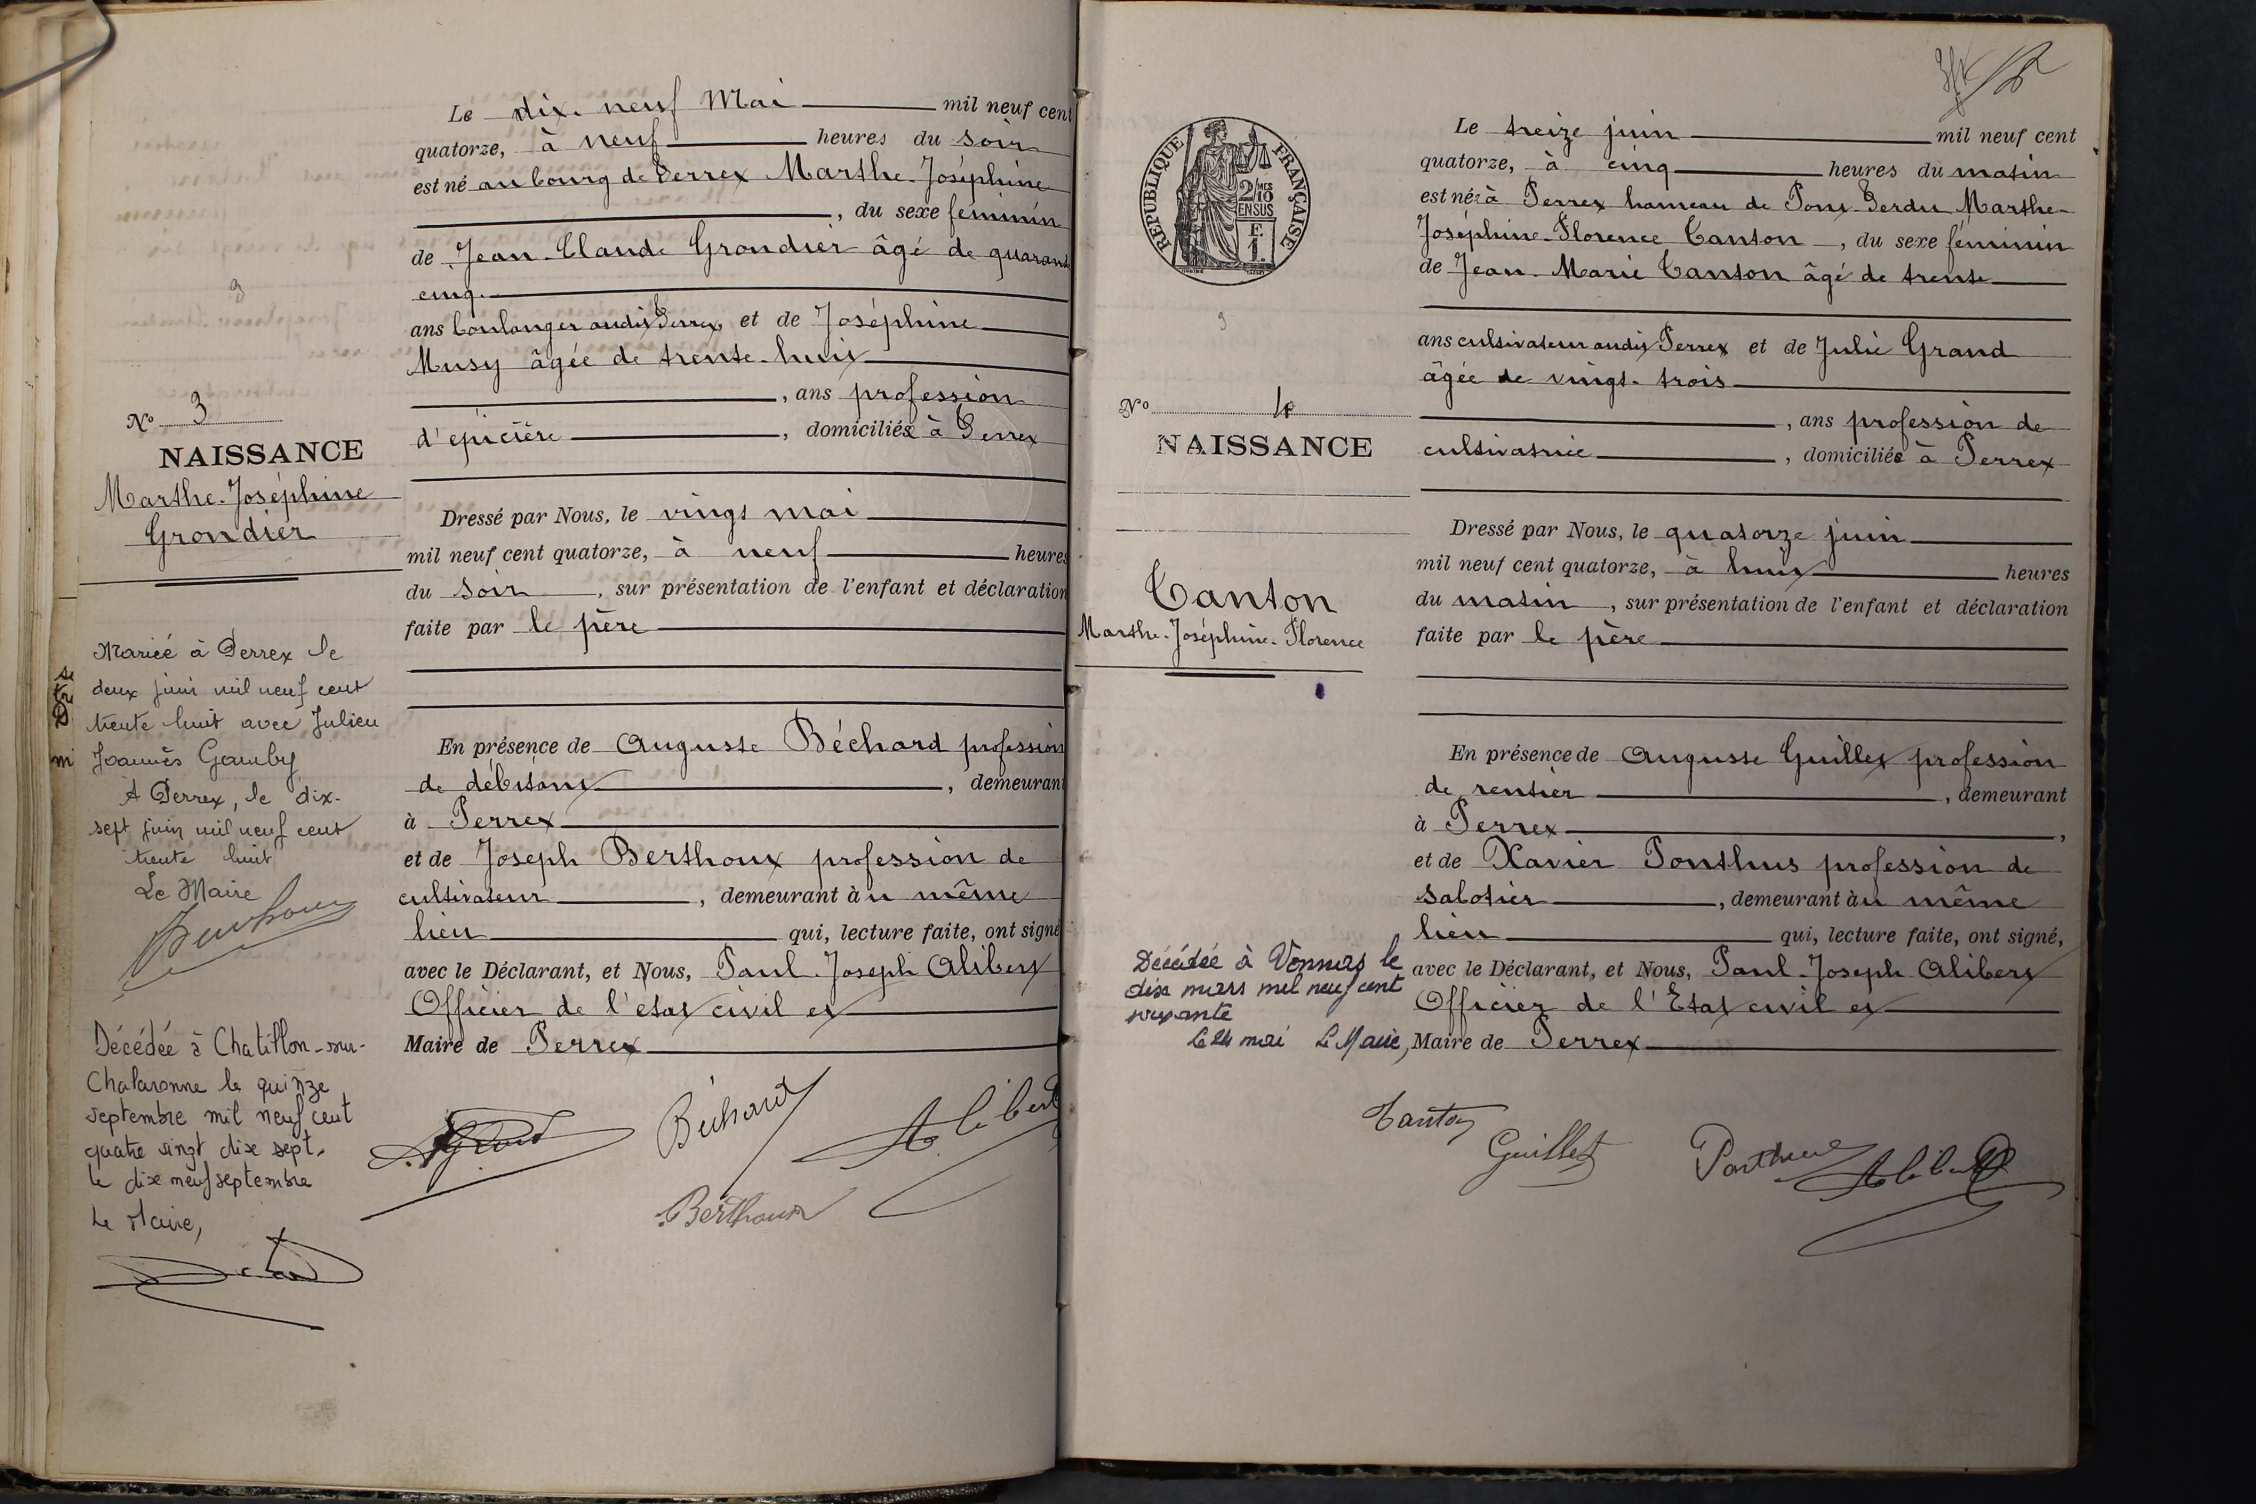 Le dix-neuf Mai mil neuf cent
quatorze, à neuf heures du soir
est né au bourg de Perrex Marthe-Joséphine
, du sexe féminin
de Jean-Claude Grondier âgé de quarante
cinq
ans boulanger audit Perrex, et de Joséphine
Musy âgée de trente-huit
, ans profession
d'épicière, domiciliée à Perrex
N° 3
NAISSANCE
Marthe-Joséphine
Grondier
Dressé par Nous, le vingt mai
mil neuf cent quatorze, à neuf heures
du soir, sur présentation de l'enfant et déclaration
faite par le père
En présence de Auguste Béchard profession
de débitant, demeurant
à Perrex
et de Joseph Berthoux profession de
cultivateur, demeurant àu même
lieu qui, lecture faite, ont signé
avec le Déclarant, et Nous, Paul-Joseph Alibert
Officier de l'état civil et
Maire de Perrex
Mariée à Perrex le
deux juin mil neuf cent
trente huit avec Julien
Joannès Gamby
A Perrex, le dix-
sept juin mil neuf cent
trente huit
Le Maire
Décédée à Chatillon-sur-
Chalaronne le quinze
septembre mil neuf cent
quatre vingt dix sept.
le dix neuf septembre
Le Maire,
Béchard
Alibert
Berthoux
RÉPUBLIQUE FRANÇAISE
2/10 MES
EN SUS
F.
1.
Le treize juin mil neuf cent
quatorze, à cinq heures du matin
est née à Perrex hameau de Pont-Perdu Marthe-
Joséphine-Florence Tanton, du sexe féminin
de Jean-Marie Tanton âgé de trente
ans cultivateur audit Perrex et de Julie Grand
âgée de vingt-trois
, ans profession de
cultivatrice, domiciliée à Perrex
N° 4
NAISSANCE
Tanton
Marthe-Joséphine-Florence
Dressé par Nous, le quatorze juin
mil neuf cent quatorze, à huit heures
du matin, sur présentation de l'enfant et déclaration
faite par le père
En présence de Auguste Guillet profession
de rentier, demeurant
à Perrex,
et de Xavier Ponthus profession de
sabotier, demeurant àu même
lieu qui, lecture faite, ont signé,
avec le Déclarant, et Nous, Paul-Joseph Alibert
Officier de l'État civil et
Maire de Perrex
Décédée à Vonnas le
dix mars mil neuf cent
soixante
Le 24 mai Le Maire,
Tanton
Guillet
Ponthus
Alibert